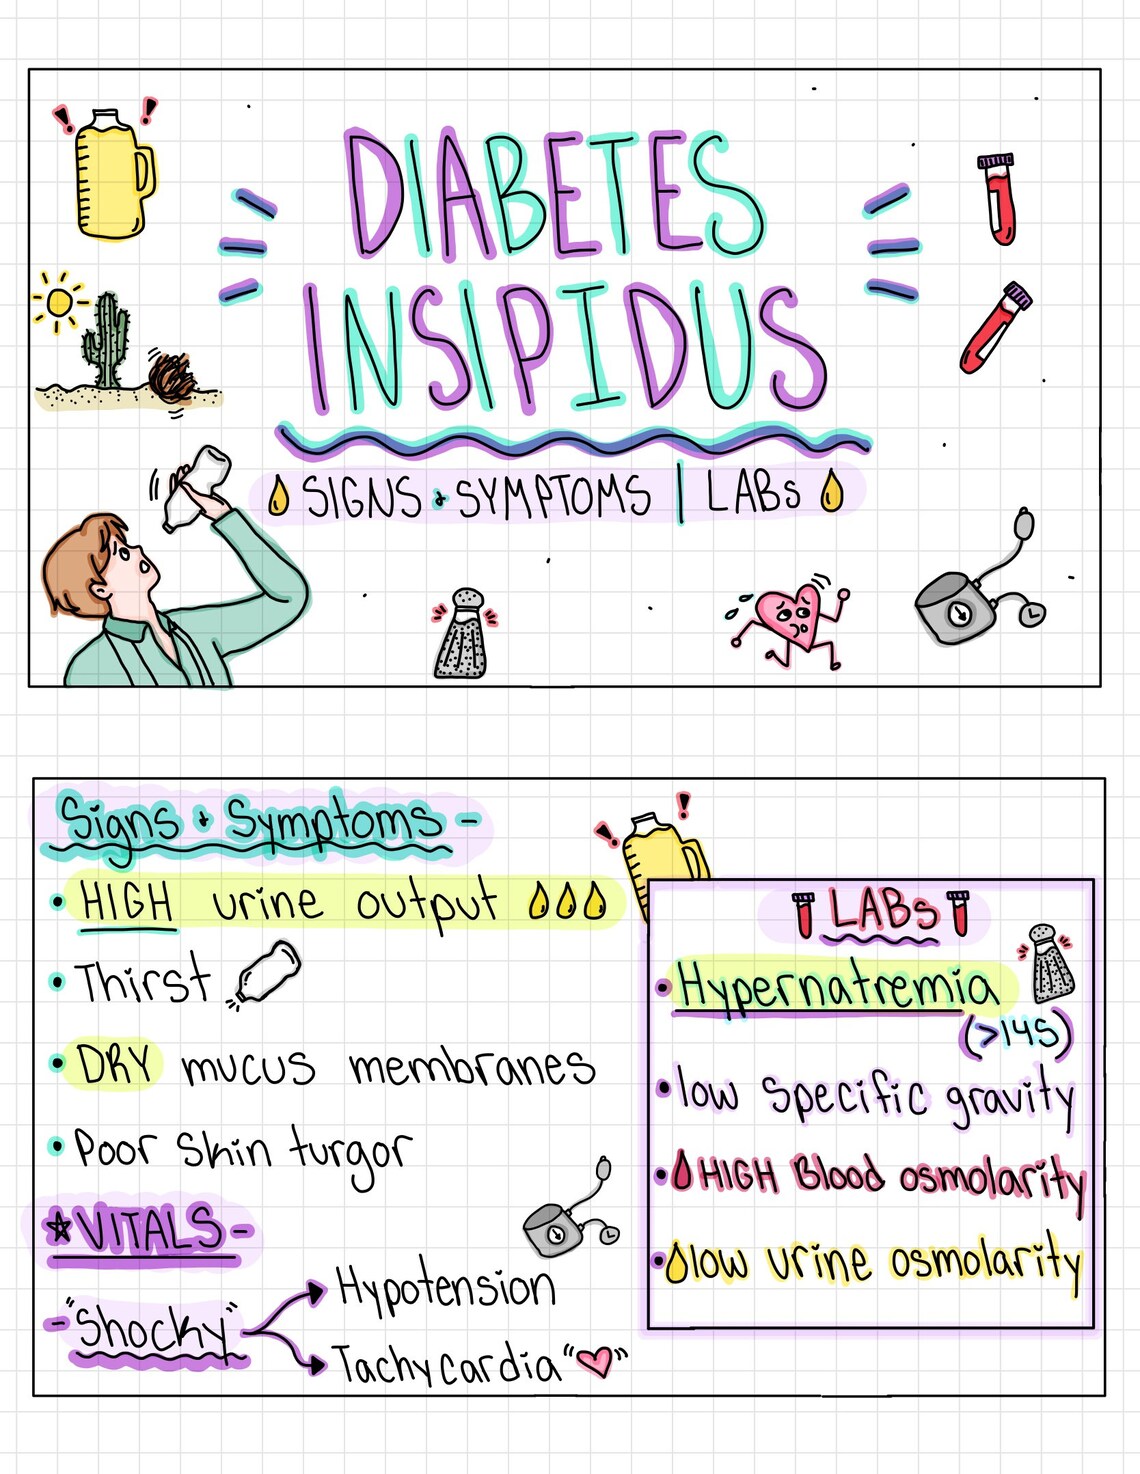 DIABETES
INSIPIDUS
SIGNS & SYMPTOMS | LABs
Signs & Symptoms -
• HIGH urine output
• Thirst
• DRY mucus membranes
• Poor skin turgor
☆ VITALS -
- "Shocky"
Hypotension
Tachycardia
LABs
• Hypernatremia
(>145)
• low specific gravity
• HIGH Blood osmolarity
• low urine osmolarity